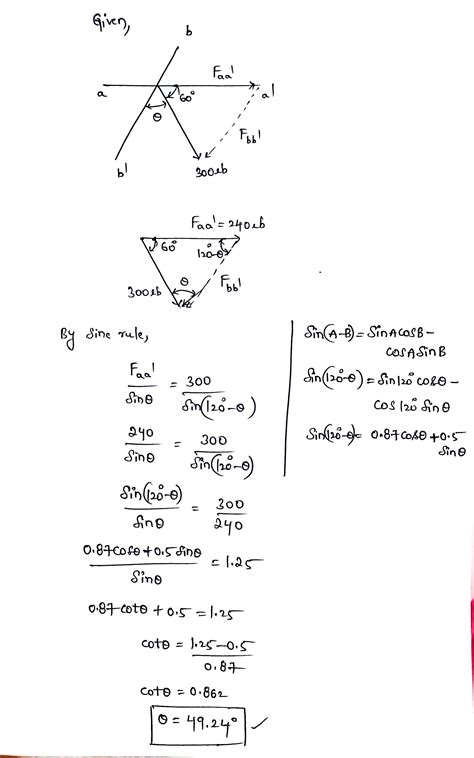 Given,
b
Faa'
a
60°
a'
θ
Fbb'
b'
300lb
Faa' = 240lb
60°
120°-θ
300lb
θ
Fbb'
By Sine rule,
Faa' / Sinθ = 300 / Sin(120°-θ)
240 / Sinθ = 300 / Sin(120°-θ)
Sin(120°-θ) / Sinθ = 300 / 240
0.87cosθ + 0.5 Sinθ / Sinθ = 1.25
0.87 cotθ + 0.5 = 1.25
cotθ = 1.25-0.5 / 0.87
cotθ = 0.862
θ = 49.24° ✓
Sin(A-B) = SinA cosB -
cosA SinB
Sin(120°-θ) = Sin120° cosθ -
cos120° Sinθ
Sin(120°-θ) = 0.87cosθ + 0.5
Sinθ